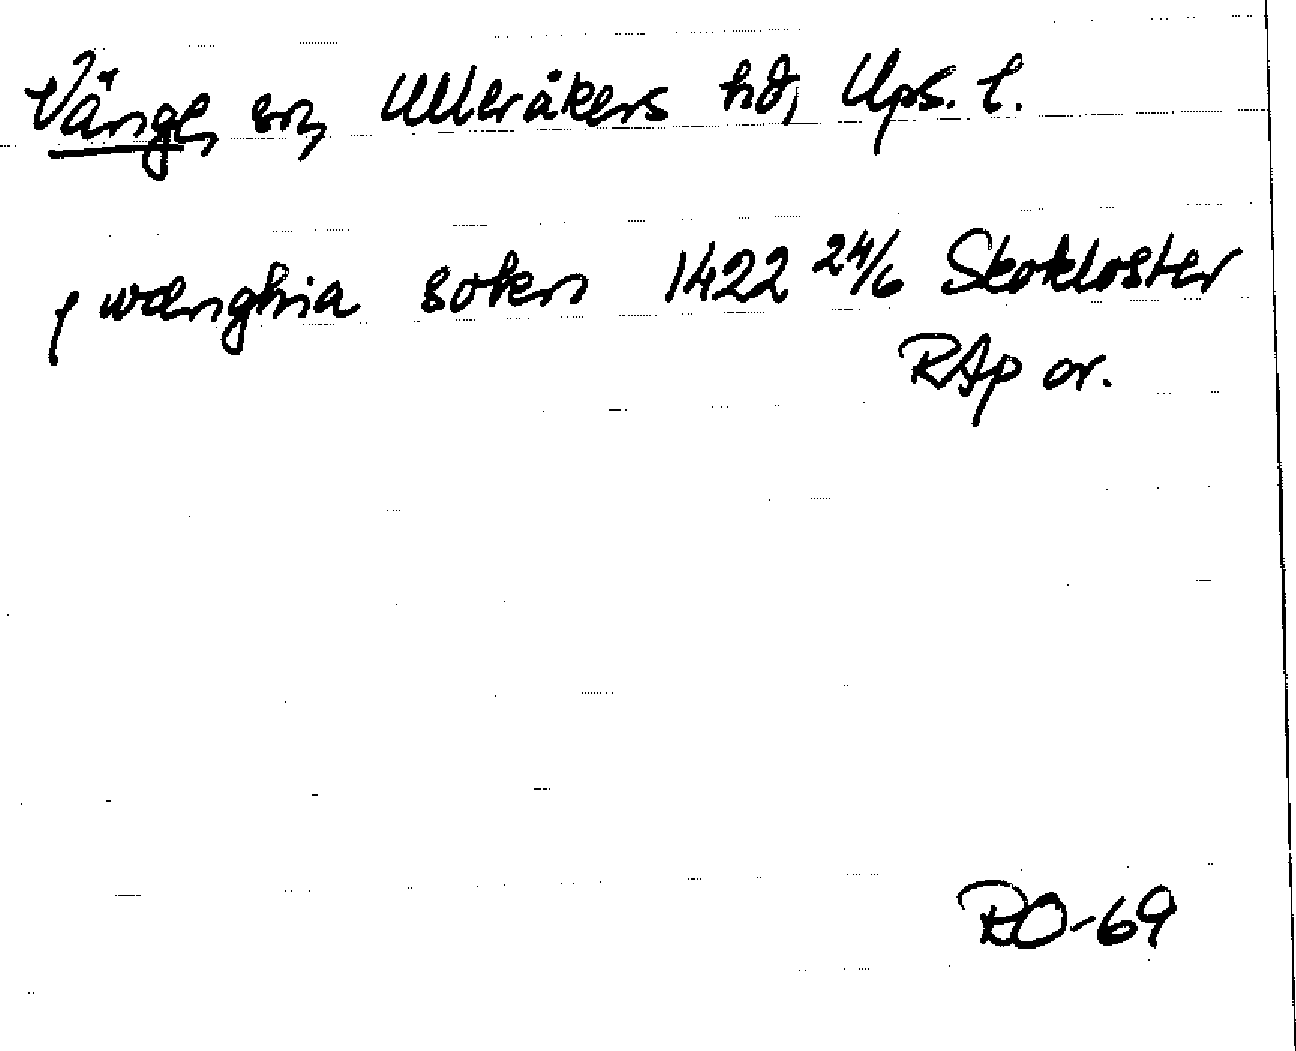 Vänge, sn, Ulleråkers hd, Ups. l.
j wænghia sokn 1422 24/6 Skokloster
RAp or.
RO-69